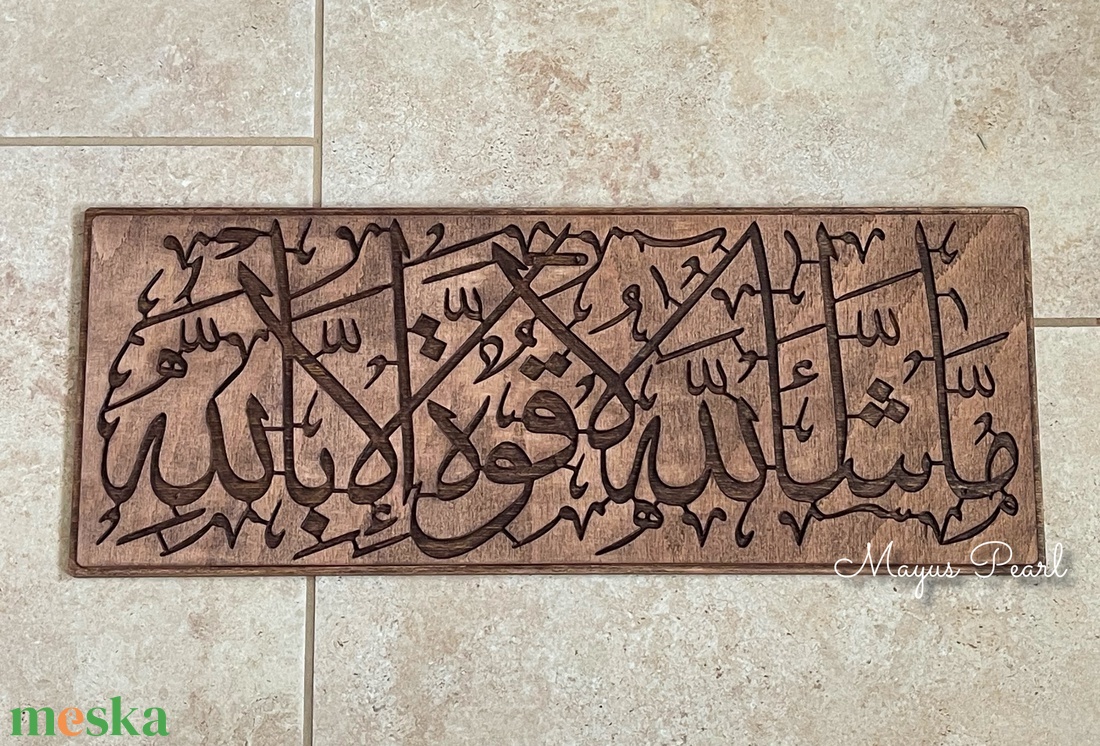 ما شاء الله لا قوة إلا بالله
Mayus Pearl
meska